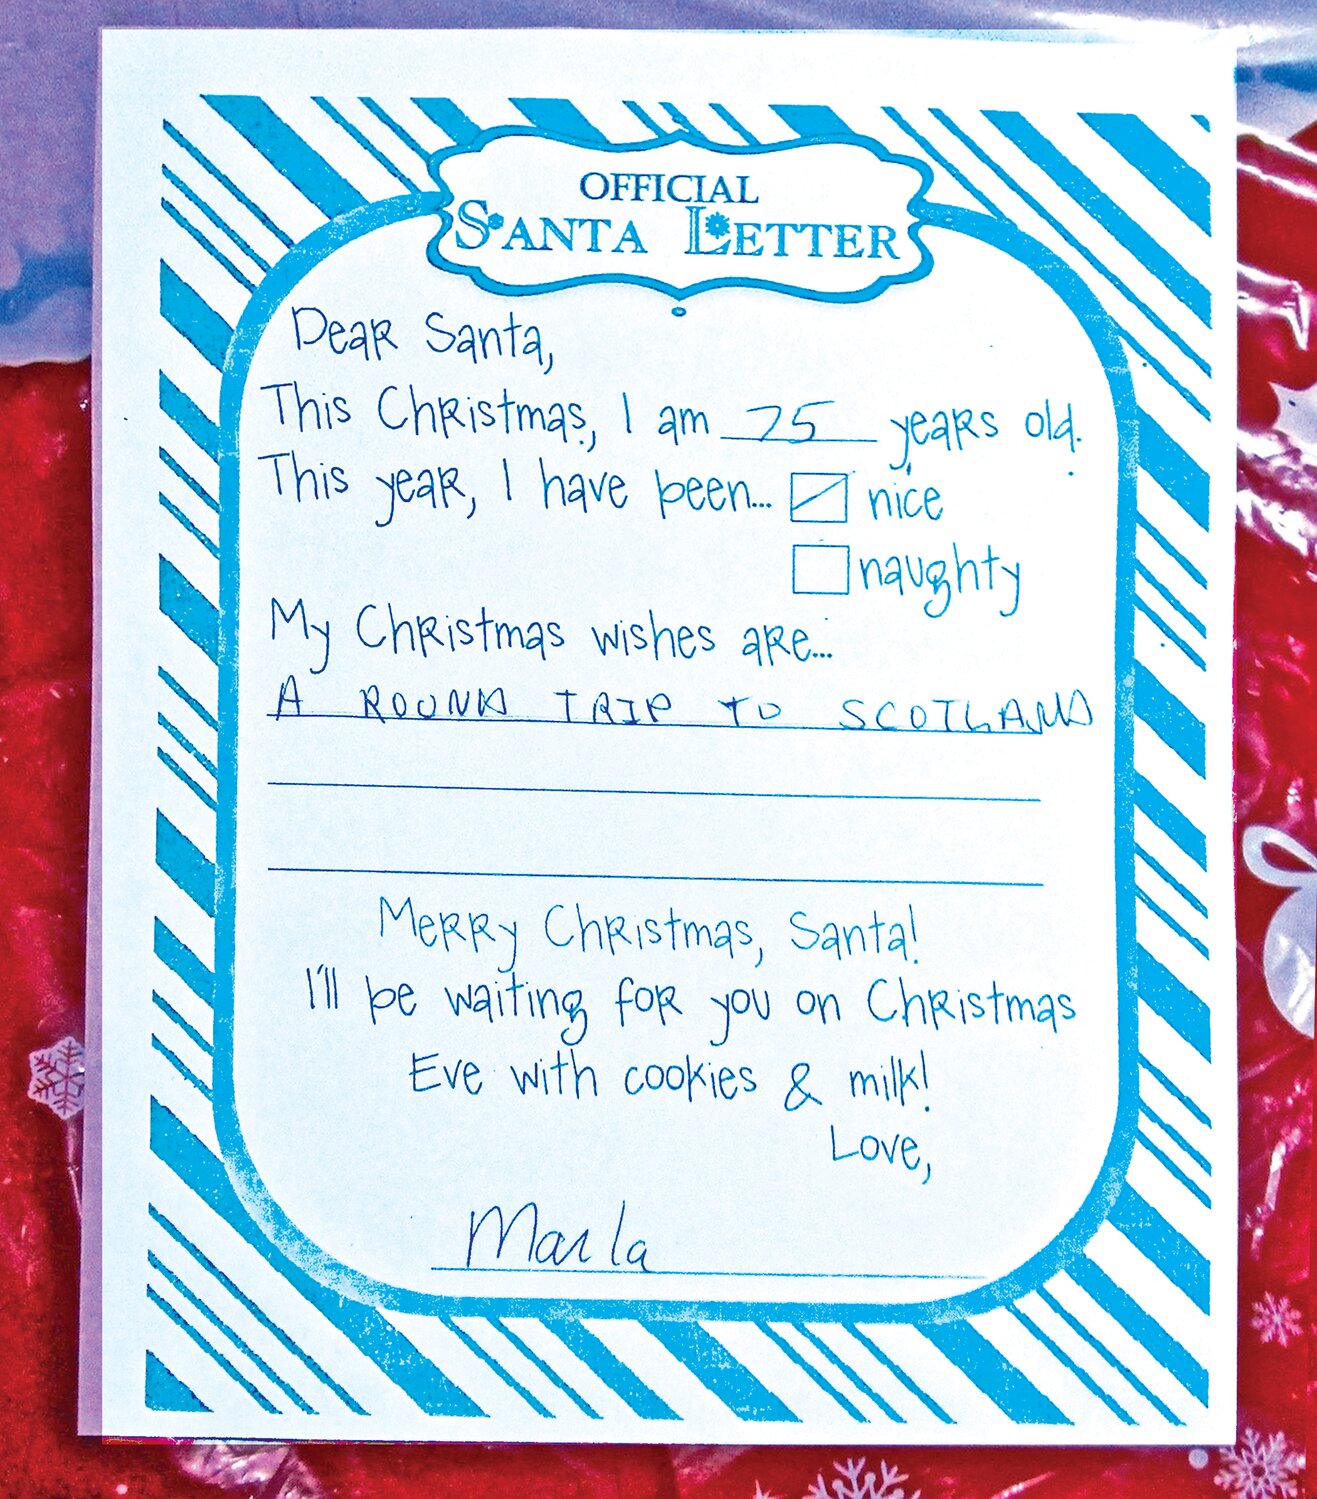 OFFICIAL
SANTA LETTER
Dear Santa,
This Christmas, I am 75 years old.
This year, I have been... nice
naughty
My Christmas wishes are...
A ROUND TRIP TO SCOTLAND
Merry Christmas, Santa!
I'll be waiting for you on Christmas
Eve with cookies & milk!
Love,
Marla